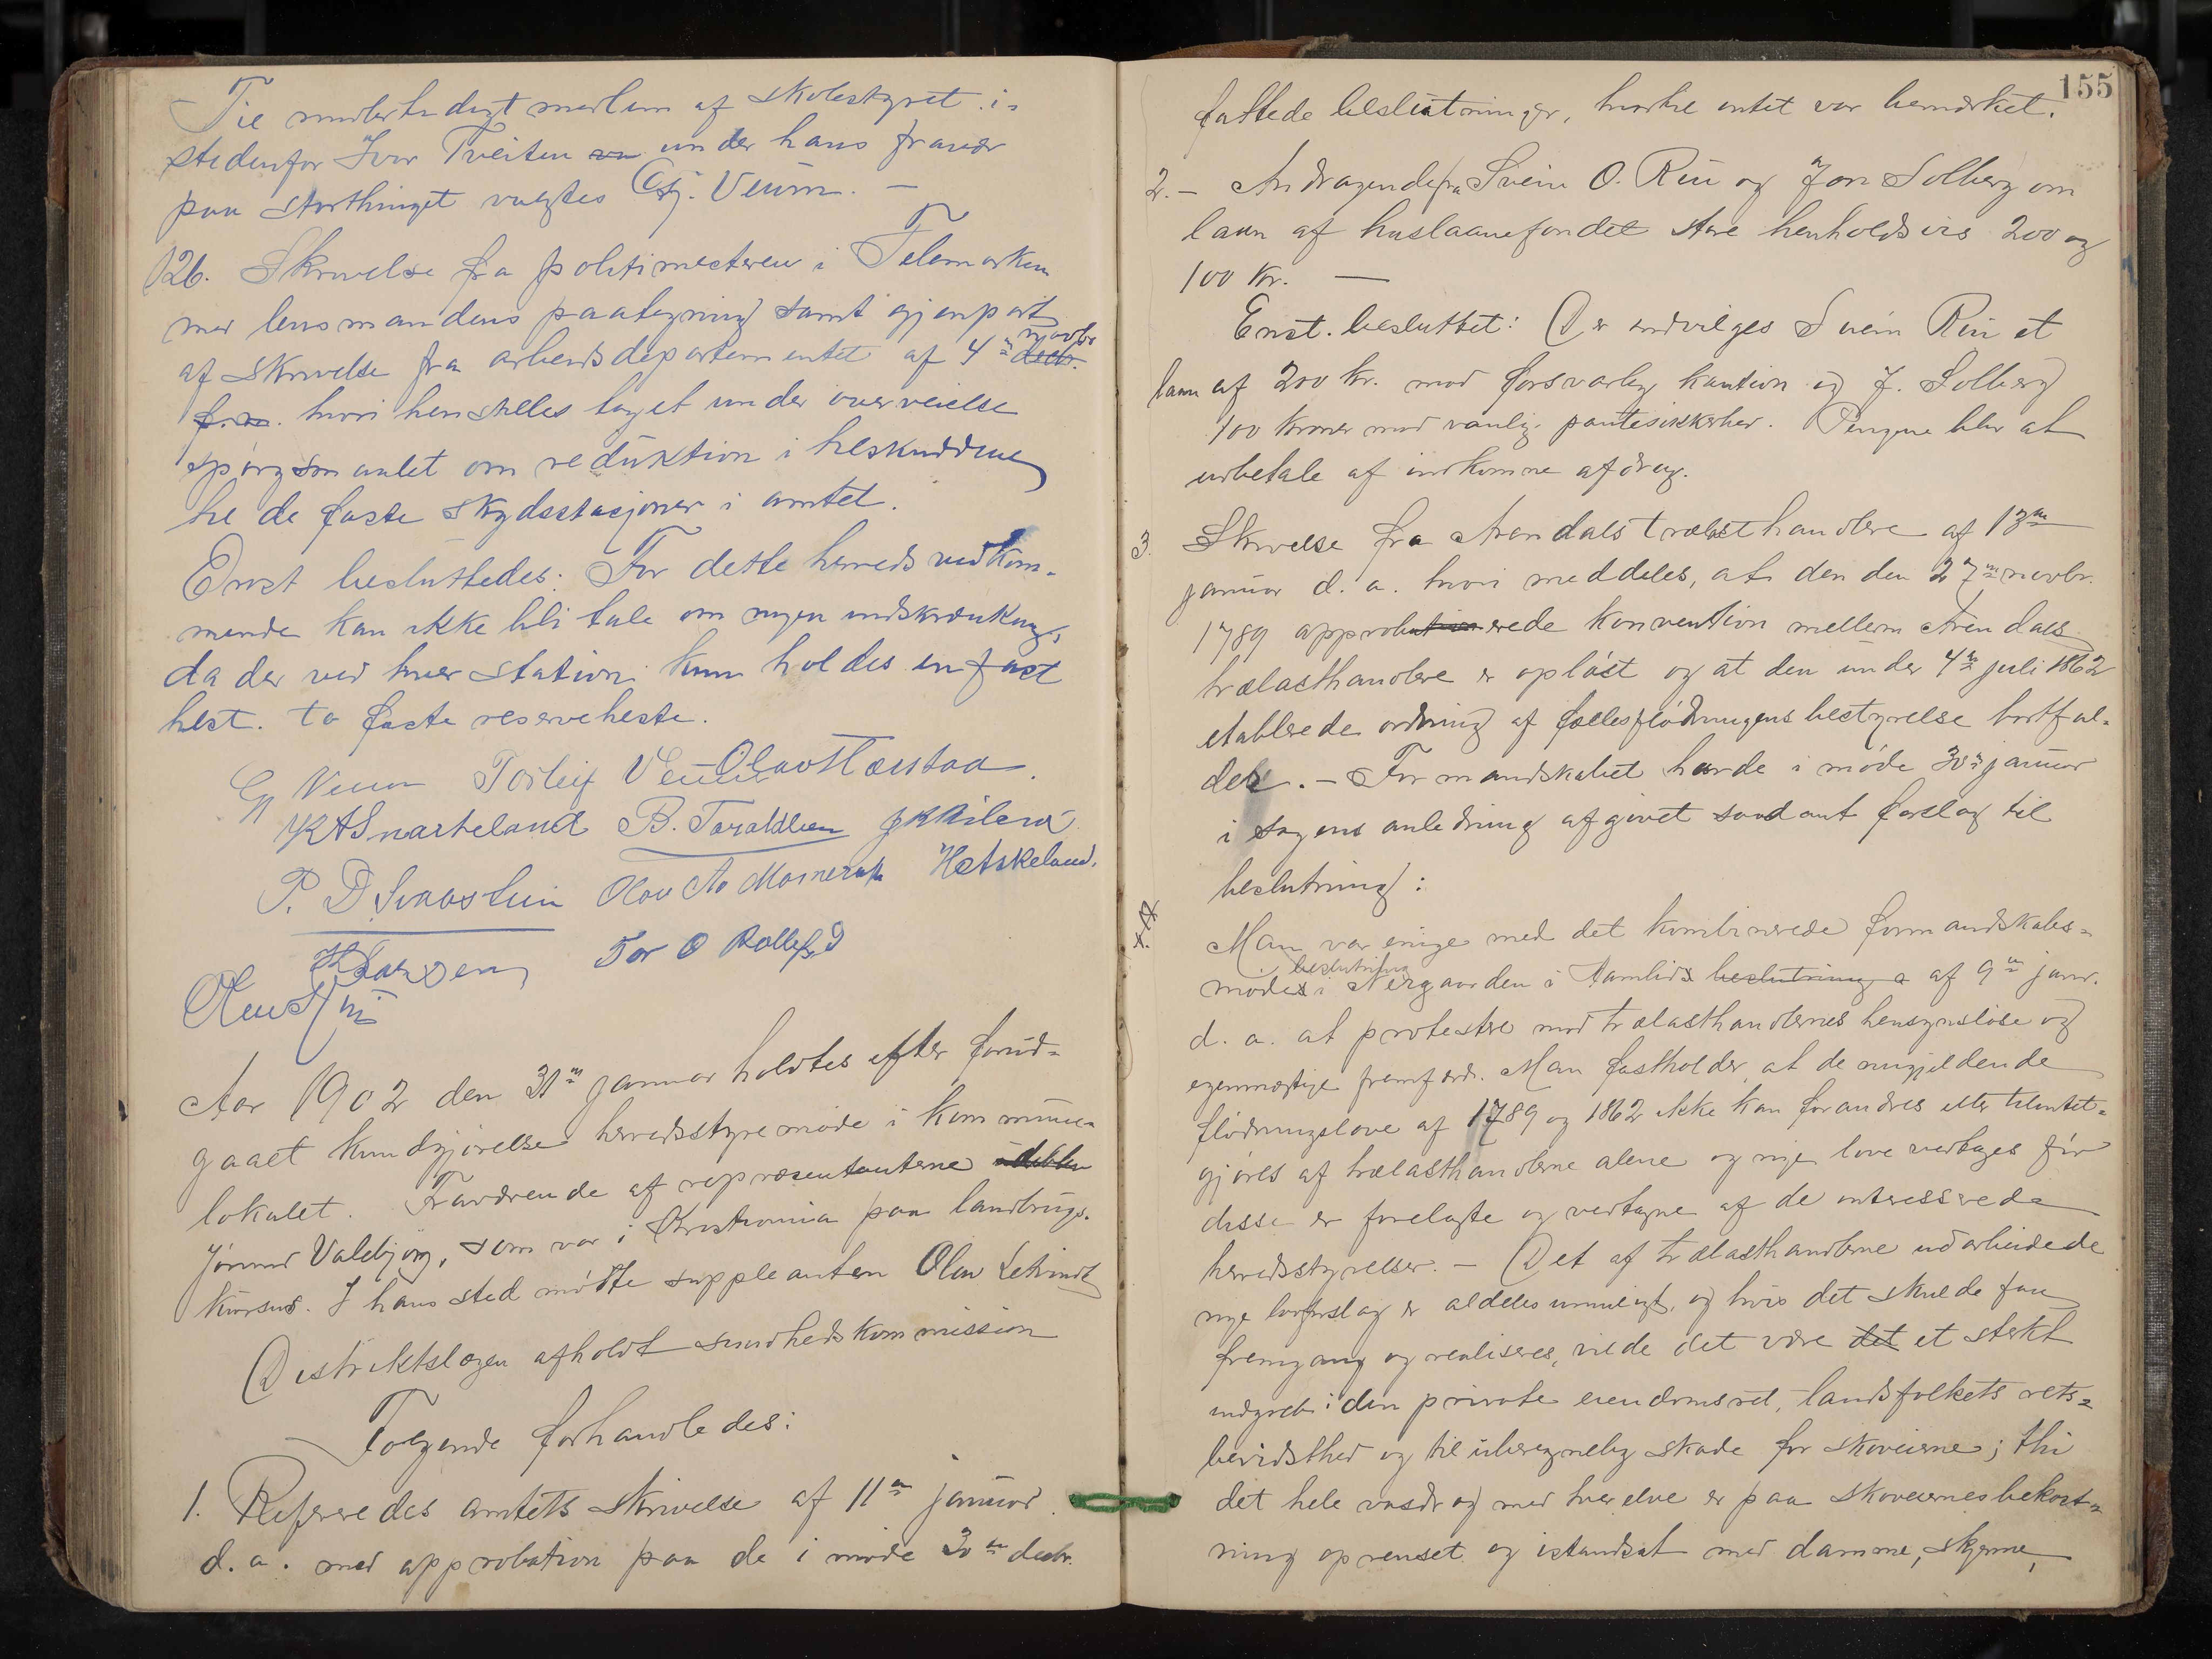 Til midlertidigt medlem af skolestyret i=
stedenfor Ivar Tveiten under hans fravær
paa storthinget valgtes Gj. Veum. —
126. Skrivelse fra politimesteren i Telemarken
med lensmandens paategning samt gjenpart
af skrivelse fra arbeidsdepartementet af 4de novbr decbr.
f.a. hvori henstilles taget under overveielse
spørgsmaalet om reduktion i tilskuddene
til de faste skydsstasjoner i amtet.
Enst besluttedes: For dette herreds vedkom-
mende kan ikke bli tale om nogen indskrænkning,
da der ved hver station kun holdes en fast
hest. to faste reserveheste.
Gj Veum Torleif Veum Olav Haustad.
K A Snarteland B. Taraldlien
P. D. Svaastun Olav Aa Momrak H Askeland.
Tor O Rollefs
Aar 1902 den 31te januar holdtes efter forud=
gaaet kundgjørelse herredsstyremøde i kommune-
lokalet. Fraværende af repræsentanterne
Jørund Valebjørg, som var i Kristiania paa landbrugs-
kursus. I hans sted mødte suppleanten Olav
Distriktslægen afholdt sundhedskommission
Følgende forhandledes:
1. Referedes amtets skrivelse af 11te januar
d. a. med approbation paa de i møde 30te decbr.
155
fattede beslutninger, hvortil intet var bemærket.
2. — Andragende fra Svein O. Rui og Jon Solberg om
laan af huslaanefondet store henholdsvis 200 og
100 kr. —
Enst. besluttet: Der indvilges Svein Rui et
laan af 200 kr. mod forsvarlig kaution og J. Solberg
100 kroner mod vanlig pantesikkerhed. Pengene blir at
udbetale af indkomne afdrag.
3. Skrivelse fra Arendals trælasthandlere af 13de
januar d. a. hvori meddeles, at den den 27de novbr.
1789 approberede konvention mellem Arendals
trælasthandlere er opløst og at den under 4de juli 1862
etablerede ordning af fællesflødningens bestyrelse bortfal-
der. — Formandskabet havde i møde 30te januar
i sagens anledning afgivet saadant forslag til
beslutning:
Man var enige med det kombinerede formandskabs-
mødes beslutning i Nergaarden i Aamlid beslutning af 9de janr.
d. a. at protestere mod trælasthandlernes hensynsløse og
egenmægtige fremfærd. Man fastholder, at de nugjeldende
flødningslove af 1789 og 1862 ikke kan forandres eller tilintet=
gjøres af trælasthandlerne alene og nye love vedtages før
disse er forelagte og vedtagne af de interesserede
herredsstyrelser. — Det af trælasthandlerne udarbeidede
nye lovforslag er aldeles umuligt, og hvis det skulde faa
fremgang og realiseres, vilde det være det et sterkt
indgreb i den private eiendomsret, landsfolkets rets=
bevidsthed og til uberegnelig skade for skoveierne; thi
det hele vasdrag med hver elve er paa skoveiernes bekost=
ning oprenset og istandsat med damme, skjerme,